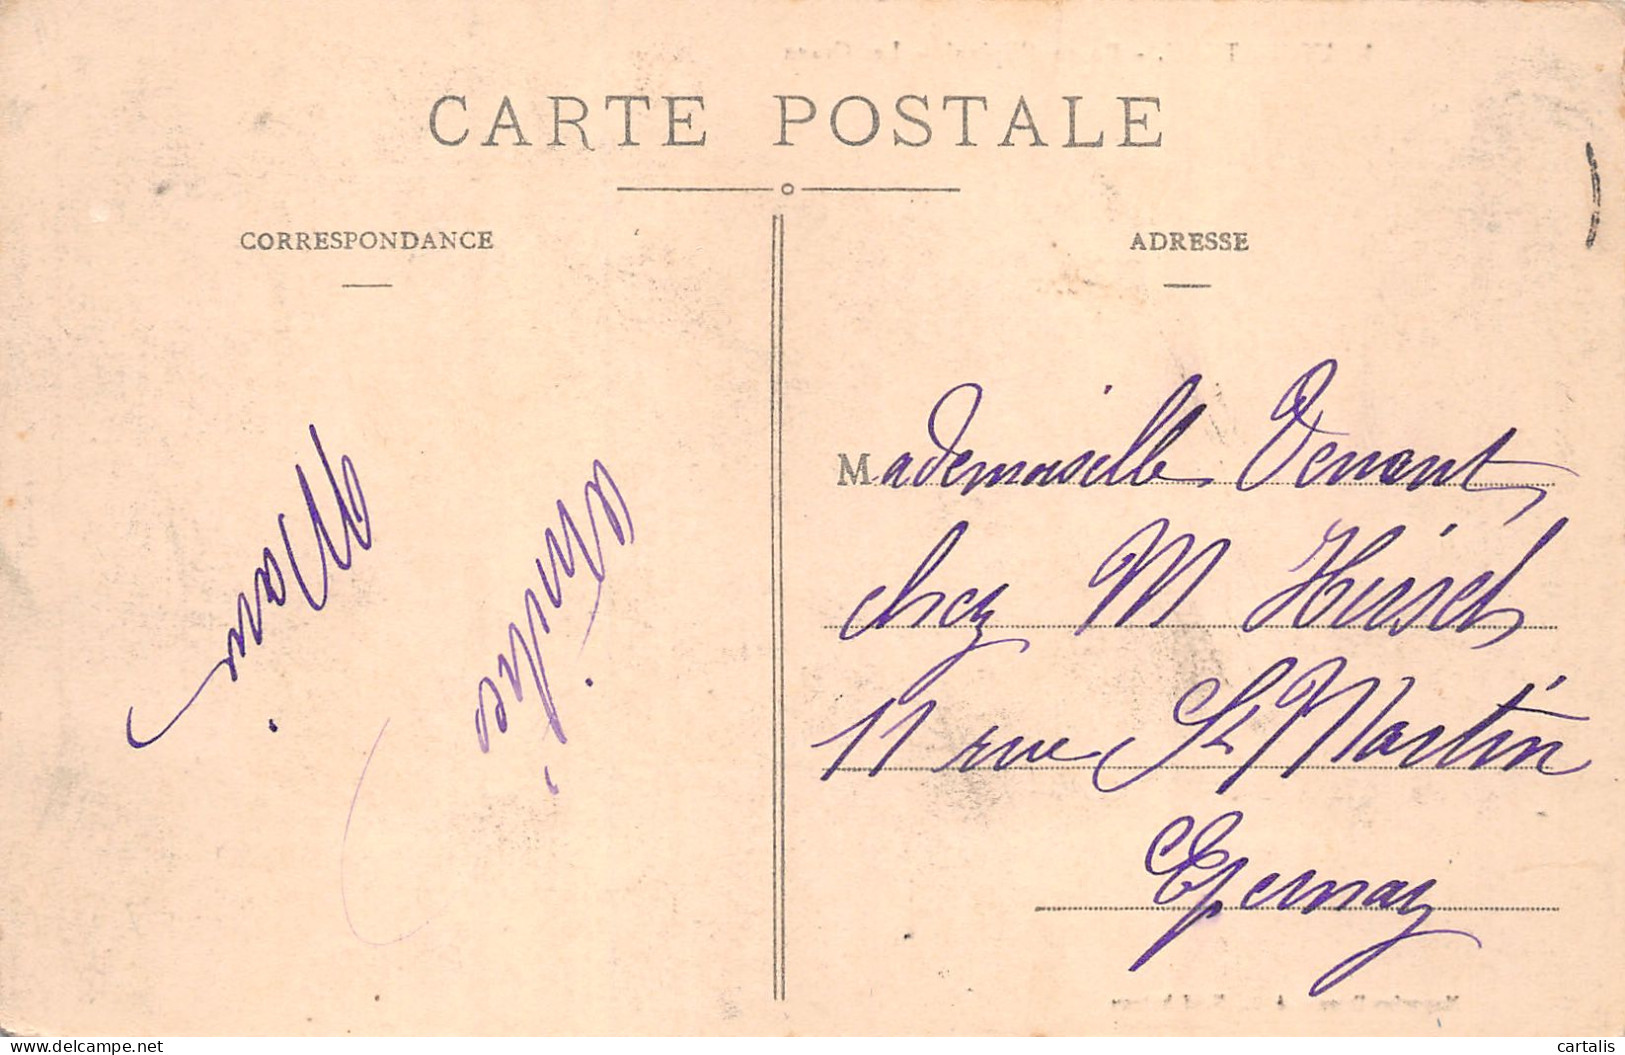 CARTE POSTALE
CORRESPONDANCE
Amitiés
Marie
ADRESSE
Mademoiselle Venant
chez M Hirsch
11 rue St Martin
Epernay
cartalis
delcampe.net